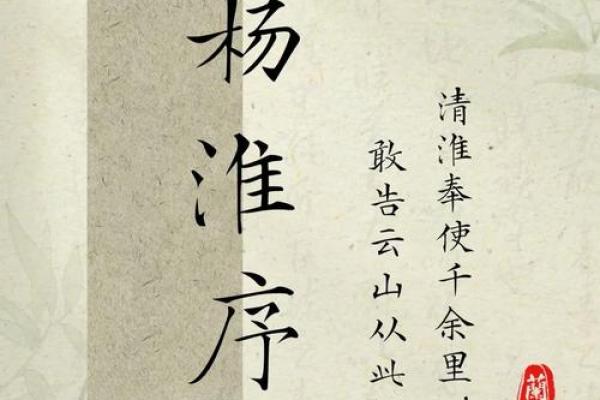 清淮奉使千余里
敢告云山从此
杨淮序
蘭